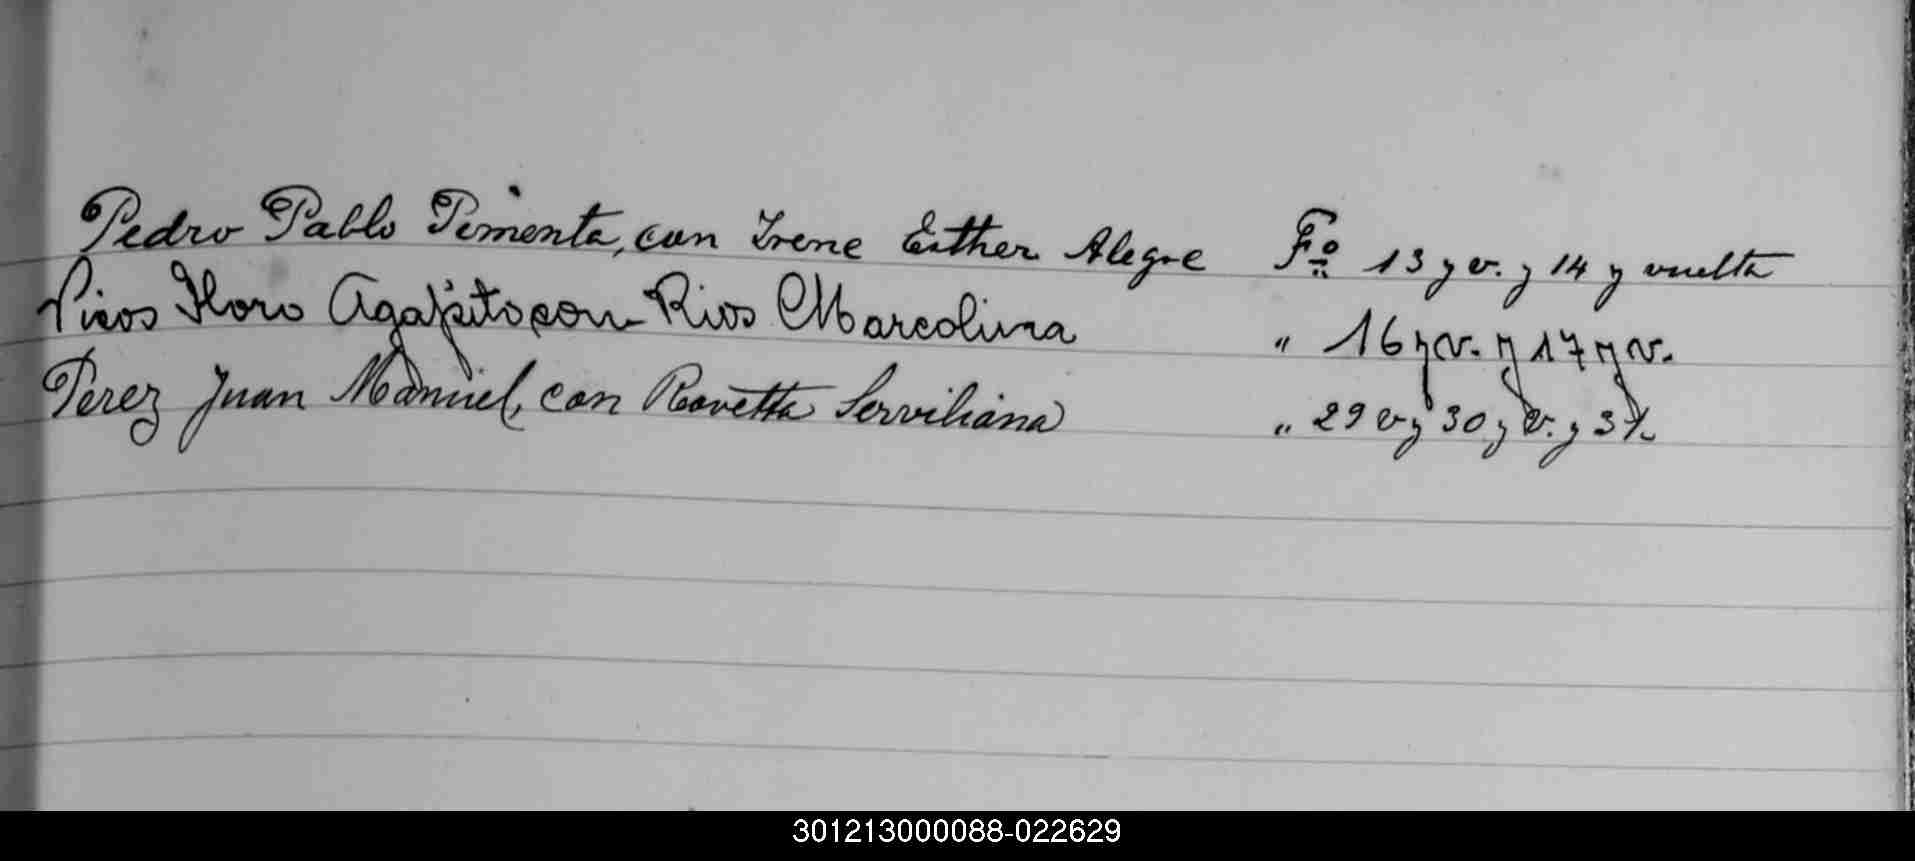 Pedro Pablo Pimenta, con Irene Esther Alegre Fº 13 y v. y 14 y vuelta
Picos Floro Agapito con Rios Marcolina " 16 y v. y 17 y v.
Perez Juan Manuel, con Rovetta Serviliana " 29 v y 30 y v. y 31.
301213000088-022629